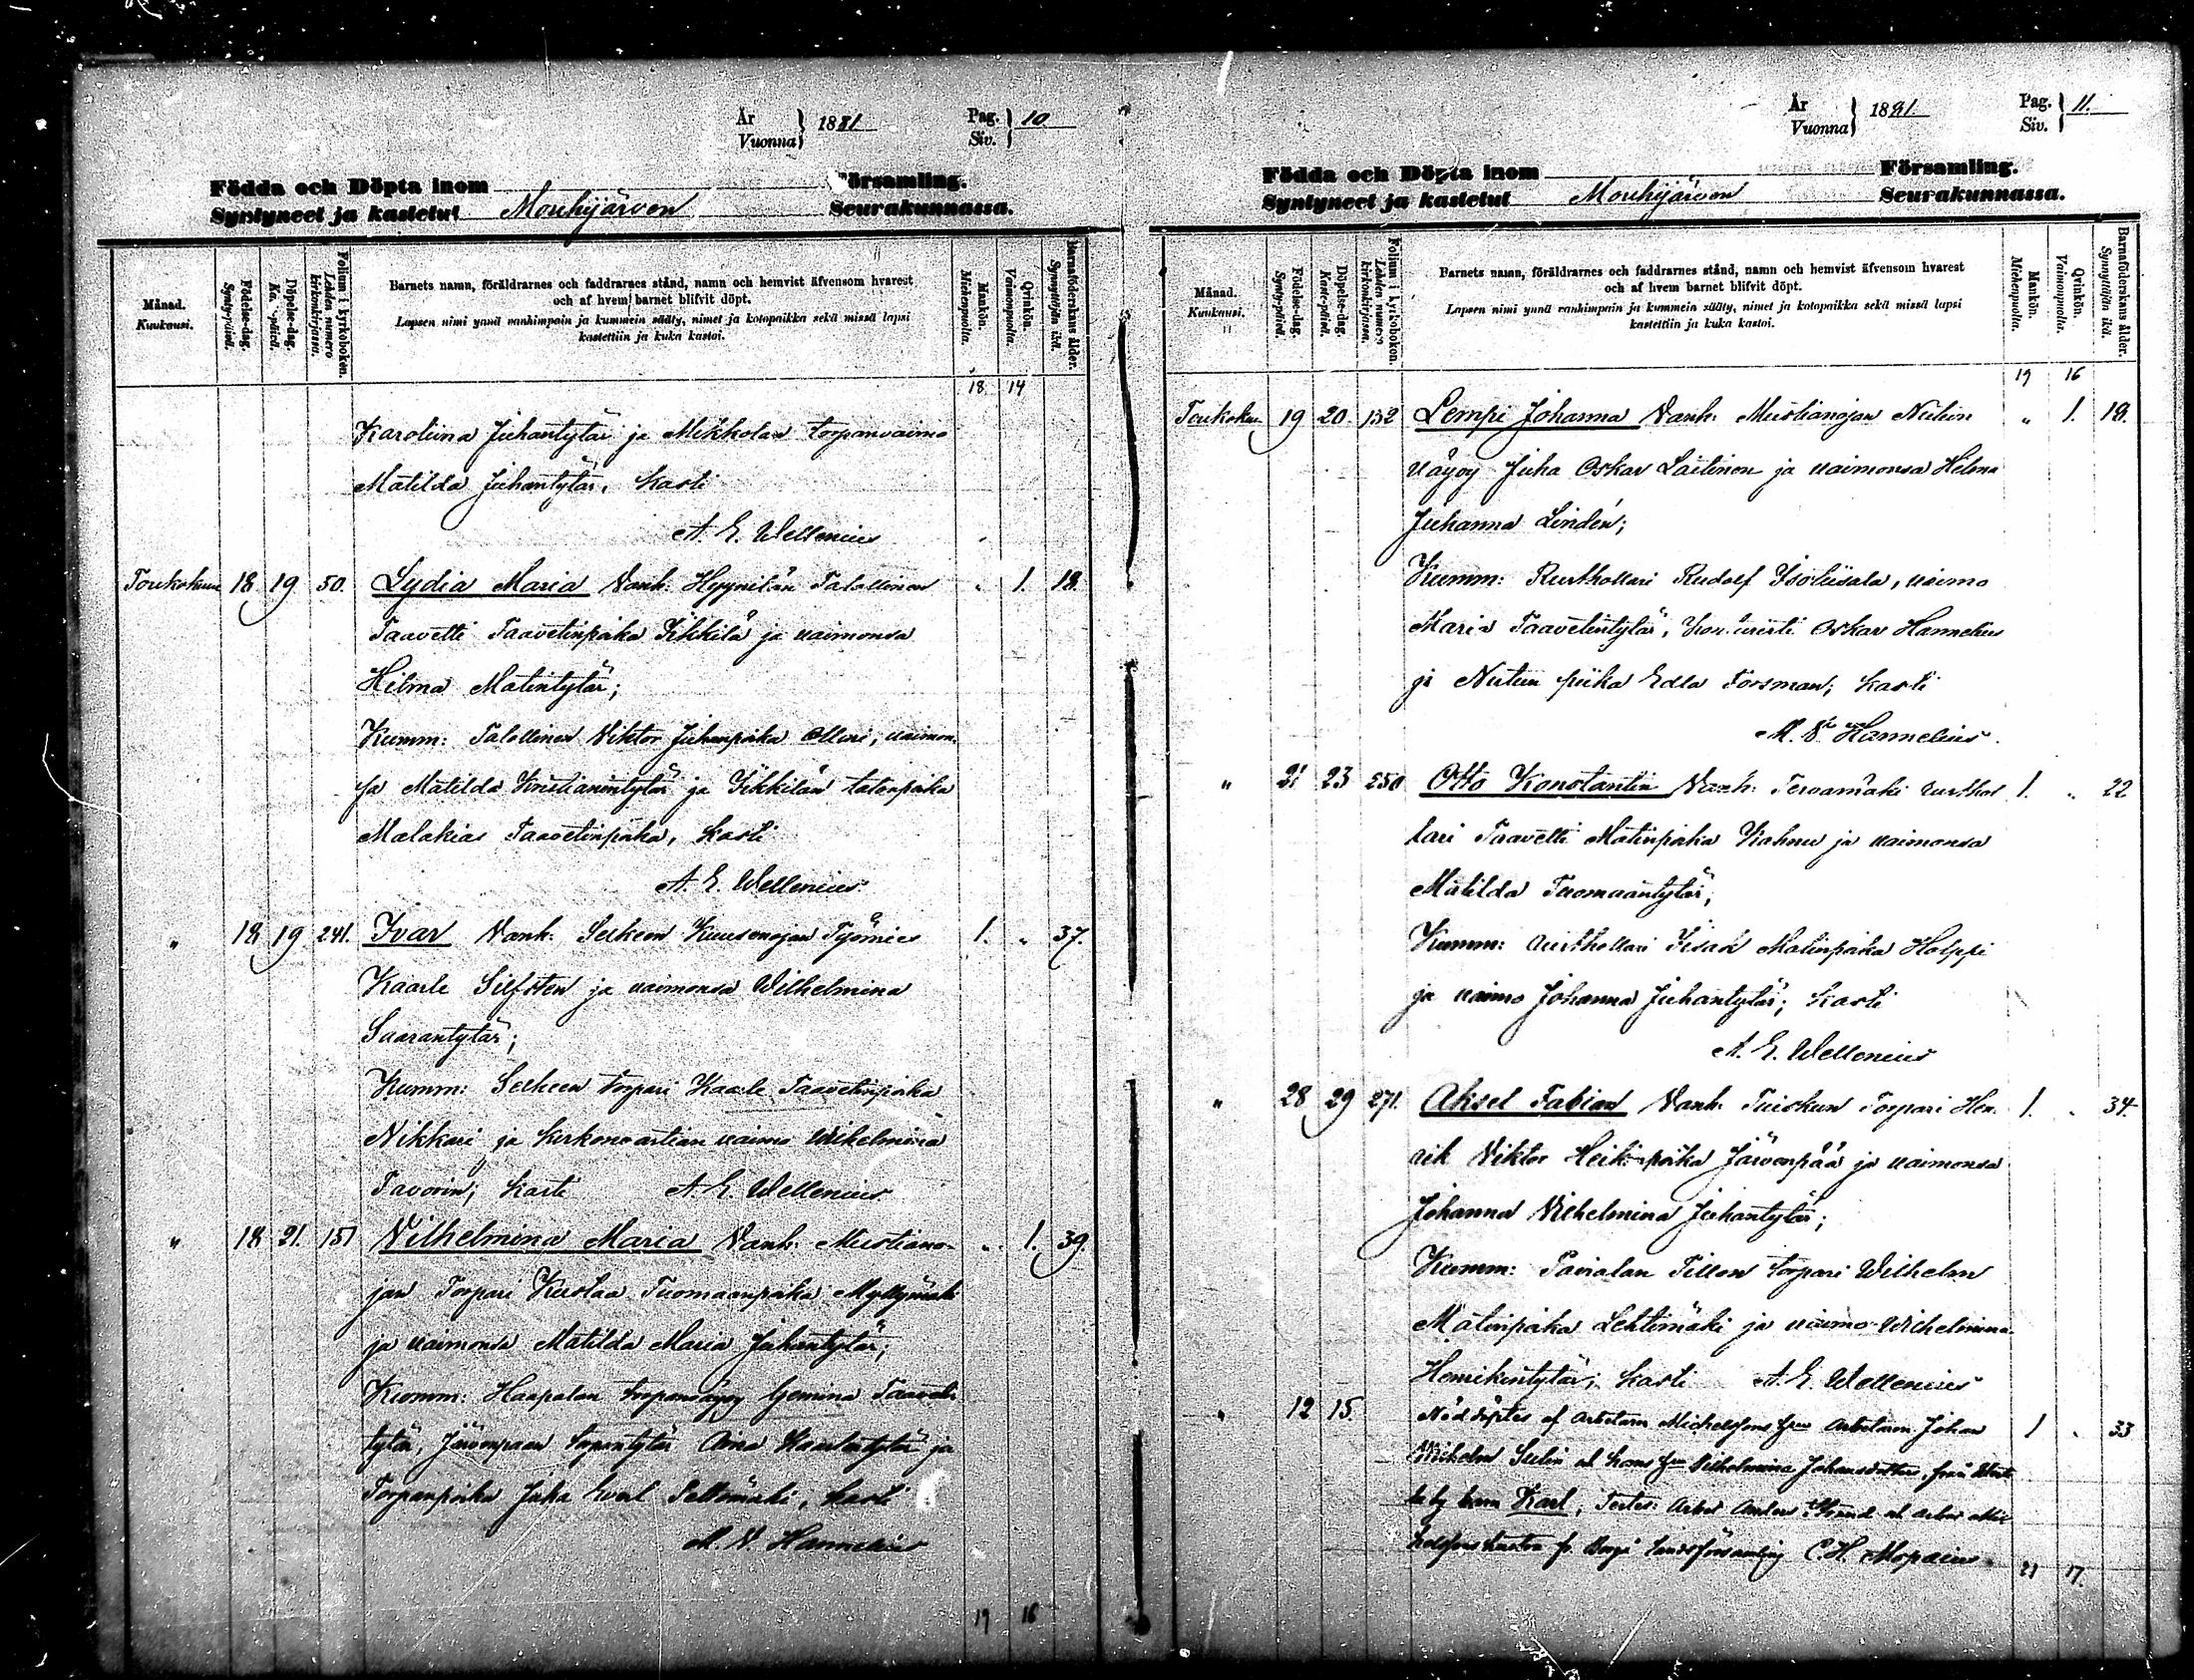 År
Vuonna } 1881
Pag.
Siv. } 10.
Födda och Döpta inom Församling.
Syntyneet ja kastetut Mouhijärven Seurakunnassa.
Månad.
Kuukausi.
Födelse-dag.
Synty-päivä.
Döpelse-dag.
Kaste-päivä.
Folium i kyrkoboken.
Lehden numero kirkonkirjassa.
Barnets namn, föräldrarnes och faddrarnes stånd, namn och hemvist äfvensom hvarest
och af hvem barnet blifvit döpt.
Lapsen nimi ynnä vanhimpain ja kummein sääty, nimet ja kotopaikka sekä missä lapsi
kastettiin ja kuka kastoi.
Mankön.
Miehenpuolta.
Qvinkön.
Vaimonpuolta.
Barnaföderskans ålder.
Synnyttäjän ikä.
18 14
Karoliina Juhantytär ja Mikkolan torpanvaimo
Matilda Juhantytär, kasti
A. E. Wellenius
Toukokuu 18 19 50. Lydia Maria Vanh: Hyynilän Talollinen " 1. 18.
Taavetti Taavetinpoika Jikkilä ja vaimonsa
Hilma Matintytär;
Kumm: Talollinen Viktor Juhanpoika Olleri, vaimon-
sa Matilda Kristianintytär ja Jikkilän talonpoika
Malakias Taavetinpoika, kasti
A. E. Wellenius
" 18 19 241. Ivar Vanh. Selkeen Kuusenojan Työmies 1. " 37.
Kaarle Silfsten ja vaimonsa Wilhelmina
Saarantytär;
Kumm: Selkeen torpari Kaarle Taavetinpoika
Nikkari ja kirkonvartian vaimo Wilhelmina
Favorin; kasti A. E. Wellenius
" 18 21. 151 Vilhelmina Maria Vanh: Mustiano- " 1. 39.
jan Torpari Kustaa Tuomaanpoika Myllymäki
ja vaimonsa Matilda Maria Juhantytär;
Kumm: Haapalan Taaveti-
tytär, Järvenpään Aina Kaarlentytär ja
Torpanpoika Juha Peltomäki, kasti
M. V. Hannelius
19 16
År
Vuonna } 1881.
Pag.
Siv. } 11.
Födda och Döpta inom Församling.
Syntyneet ja kastetut Mouhijärven Seurakunnassa.
Månad.
Kuukausi.
Födelse-dag.
Synty-päivä.
Döpelse-dag.
Kaste-päivä.
Folium i kyrkoboken.
Lehden numero kirkonkirjassa.
Barnets namn, föräldrarnes och faddrarnes stånd, namn och hemvist äfvensom hvarest
och af hvem barnet blifvit döpt.
Lapsen nimi ynnä vanhimpain ja kummein sääty, nimet ja kotopaikka sekä missä lapsi
kastettiin ja kuka kastoi.
Mankön.
Miehenpuolta.
Qvinkön.
Vaimonpuolta.
Barnaföderskans ålder.
Synnyttäjän ikä.
19 16
Toukokuu 19 20. 132 Lempi Johanna Vanh: Mustianojan " 1. 18.
vävy Juha Oskar Laitinen ja vaimonsa Helena
Juhanna Lindén;
Kumm: Rusthollari Rudolf vaimo
Maria Taavetintytär, Oskar Hannelius
ja piika Edla Forsman; kasti
M. V. Hannelius.
" 21 23 250 Otto Konstantin Vanh: rusthol 1. " 22
lari Taavetti Matinpoika ja vaimonsa
Matilda Tuomaantytär;
Kumm: rusthollari Iisak Matinpoika Holppi
ja vaimo Johanna Juhantytär; kasti
A. E. Wellenius
" 28 29 271. Aksel Fabian Vanh. Tuiskun Torpari Hen- 1. " 34.
rik Viktor Heikinpoika Järvenpää ja vaimonsa
Johanna Vilhelmina Juhantytär;
Kumm: torpari Wilhelm
Matinpoika Lehtimäki ja vaimo Wilhelmina
Henrikintytär; kasti A. E. Wellenius
" 12 15. Nöddöptes af Arbetaren Arbetaren Johan 1 " 33
Wilhelm Selin och hans Vilhelmina Johansdotter, från
barn Karl; Testes: Anders och
Borgå landsförsamling C. H.
21 17.